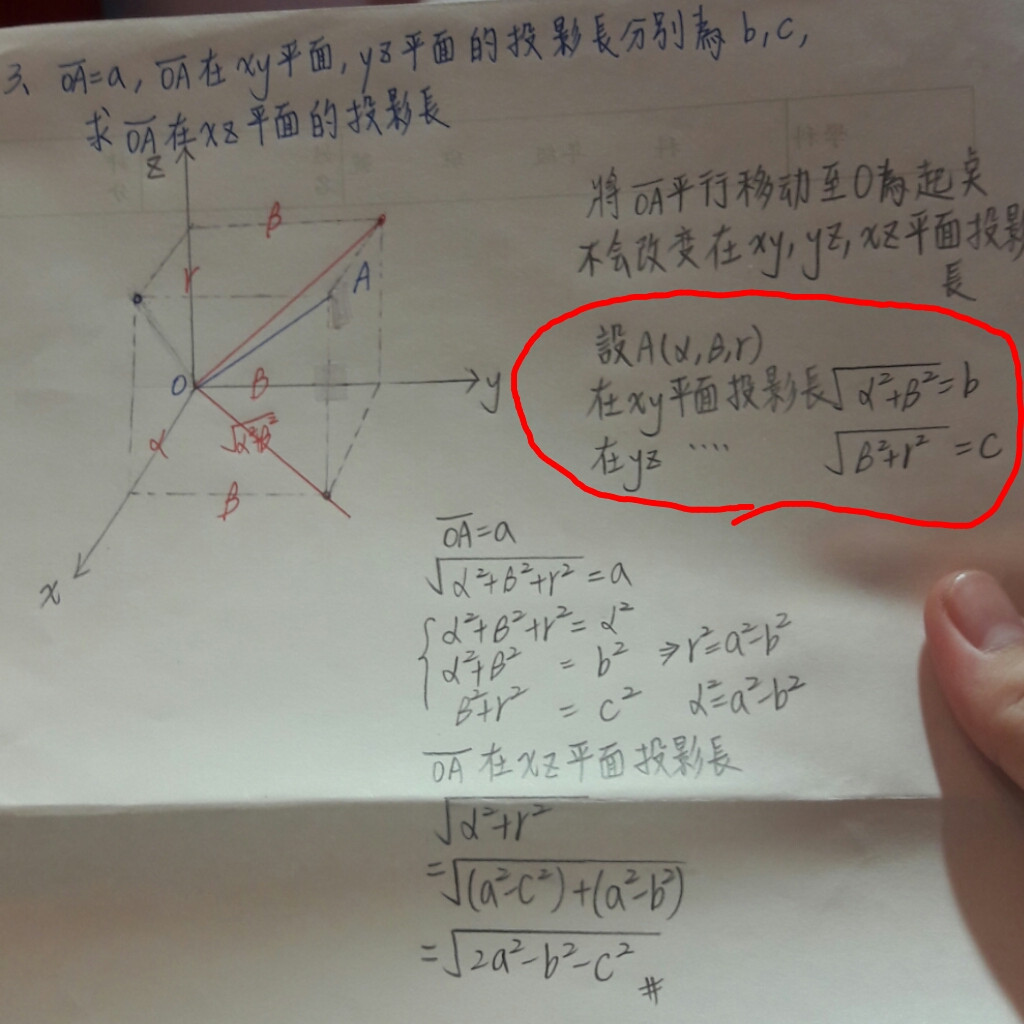 3、 OA=a, OA在xy平面,yz平面的投影長分別為 b,c,
求 OA在xz平面的投影長
z
β
r
A
將 OA平行移动至O為起点
不会改变在xy,yz,xz平面投影
長
O
β
y
α
√α²+β²
β
x
設A(α,β,r)
在xy平面投影長√α²+β²=b
在yz ‥‥ √β²+r² =c
OA=a
√α²+β²+r² =a
α²+β²+r²=α²
α²+β² = b² ⇒r²=a²-b²
β²+r² = c² α²=a²-b²
OA 在xz平面投影長
√α²+r²
=√(a²-c²)+(a²-b²)
=√2a²-b²-c² #